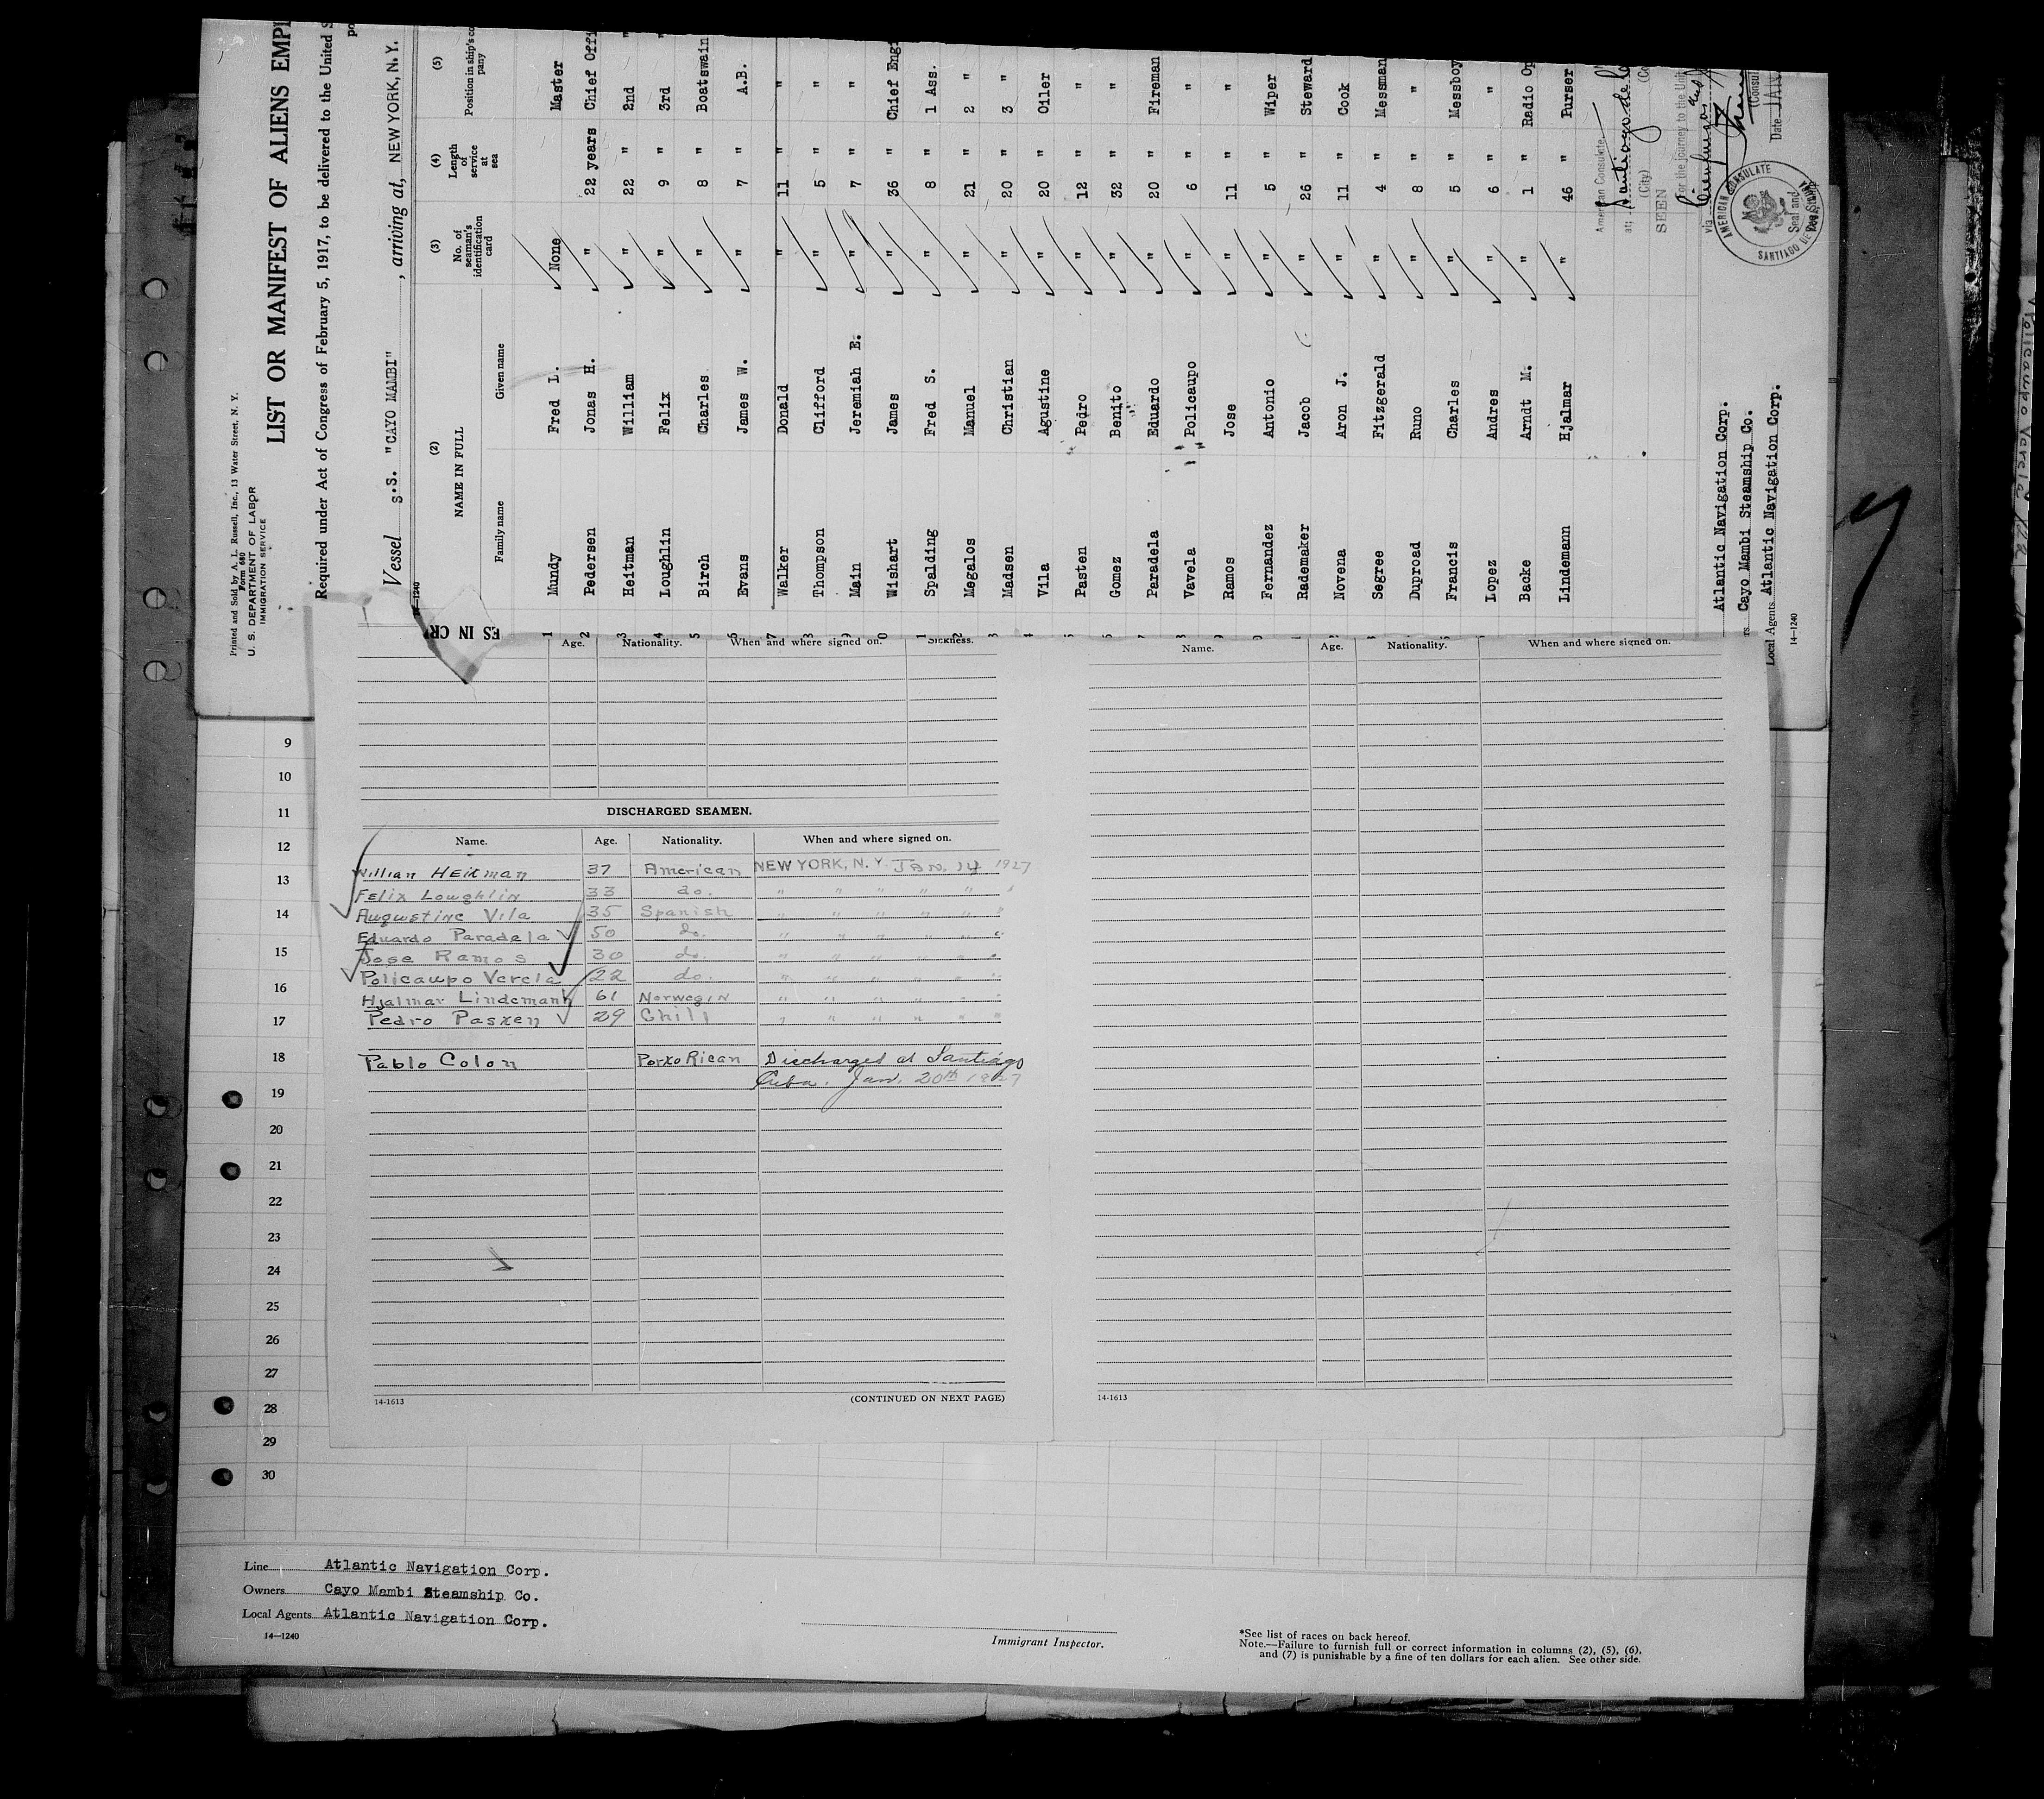 Printed and Sold by A. L. Russell, Inc., 13 Water Street, N. Y.
Form 680
U. S. DEPARTMENT OF LABOR
IMMIGRATION SERVICE
LIST OR MANIFEST OF ALIENS EMPL
Required under Act of Congress of February 5, 1917, to be delivered to the United S
Vessel S.S. "CAYO MAMBI" , arriving at, NEW YORK, N. Y.
14-1240
(2) (3) (4) (5)
NAME IN FULL No. of seaman's identification card Length of service at sea Position in ship's company
Family name Given name
1 Mundy Fred L. None Master
2 Pedersen Jonas H. " 22 years Chief Offi
3 Heitman William " 22 " 2nd "
4 Loughlin Felix " 9 " 3rd "
5 Birch Charles " 8 " Boatswain
6 Evans James W. " 7 " A.B.
7 Walker Donald " 11 " "
8 Thompson Clifford " 5 " "
9 Main Jeremiah E. " 7 " "
0 Wishart James " 36 " Chief Engi
1 Spalding Fred S. " 8 " 1 Ass.
2 Megalos Manuel " 21 " 2 "
3 Madsen Christian " 20 " 3 "
4 Vila Agustine " 20 " Oiler
5 Pasten Pedro " 12 " "
6 Gomez Benito " 32 " "
7 Paradela Eduardo " 20 " Fireman
8 Vavela Policaupo " 6 " "
9 Ramos Jose " 11 " "
0 Fernandez Antonio " 5 " Wiper
1 Rademaker Jacob " 26 " Steward
2 Novena Aron J. " 11 " Cook
3 Segree Fitzgerald " 4 " Messman
4 Duproad Runo " 8 " "
5 Francis Charles " 5 " Messboy
6 Lopez Andres " 6 " "
7 Backe Arndt M. " 1 " Radio Op
8 Lindemann Hjalmar " 46 " Purser
American Consulate
at Santiago de
(City)
SEEN
For the journey to the Unit
via Cienfuegos and
(Consul
Date JAN
AMERICAN CONSULATE
SANTIAGO DE
Atlantic Navigation Corp.
Cayo Mambi Steamship Co.
Local Agents Atlantic Navigation Corp.
14-1240
ES IN CR
Age. Nationality. When and where signed on. Sickness.
DISCHARGED SEAMEN.
Name. Age. Nationality. When and where signed on.
Willian Heitman 37 American NEW YORK, N. Y. JAN. 14 1927
Felix Loughlin 33 do. " " " " " "
Augustine Vila 35 Spanish " " " " " "
Eduardo Paradela 50 do. " " " " " "
Jose Ramos 30 do. " " " " " "
Policaupo Verela 22 do. " " " " " "
Hjalmar Lindemann 61 Norwegin " " " " " "
Pedro Pasten 29 Chili " " " " " "
Pablo Colon Porto Rican Discharged at Santiago
Cuba. Jan. 20th 1927
14-1613
(CONTINUED ON NEXT PAGE)
Name. Age. Nationality. When and where signed on.
14-1613
9
10
11
12
13
14
15
16
17
18
19
20
21
22
23
24
25
26
27
28
29
30
Line Atlantic Navigation Corp.
Owners Cayo Mambi Steamship Co.
Local Agents Atlantic Navigation Corp.
14—1240
Immigrant Inspector.
*See list of races on back hereof.
Note.—Failure to furnish full or correct information in columns (2), (5), (6),
and (7) is punishable by a fine of ten dollars for each alien. See other side.
Policaupo Varela